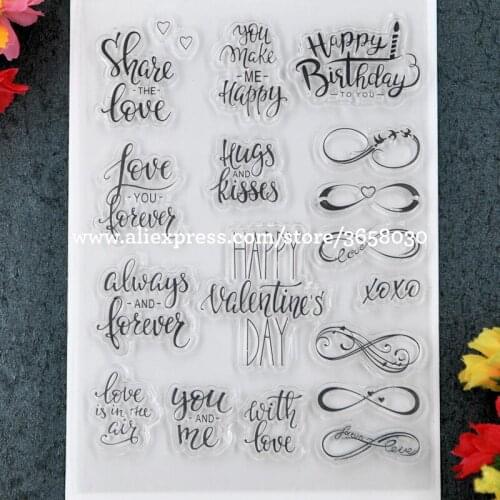 Share
-THE-
love
you
make
-ME-
Happy
Happy
Birthday
-TO YOU-
love
-YOU-
forever
Hugs
AND
kisses
www.aliexpress.com/store/3658030
HAPPY
Valentine's
DAY
love
xoxo
always
-AND-
forever
love
is in the
air
you
-AND-
me
with
love
love